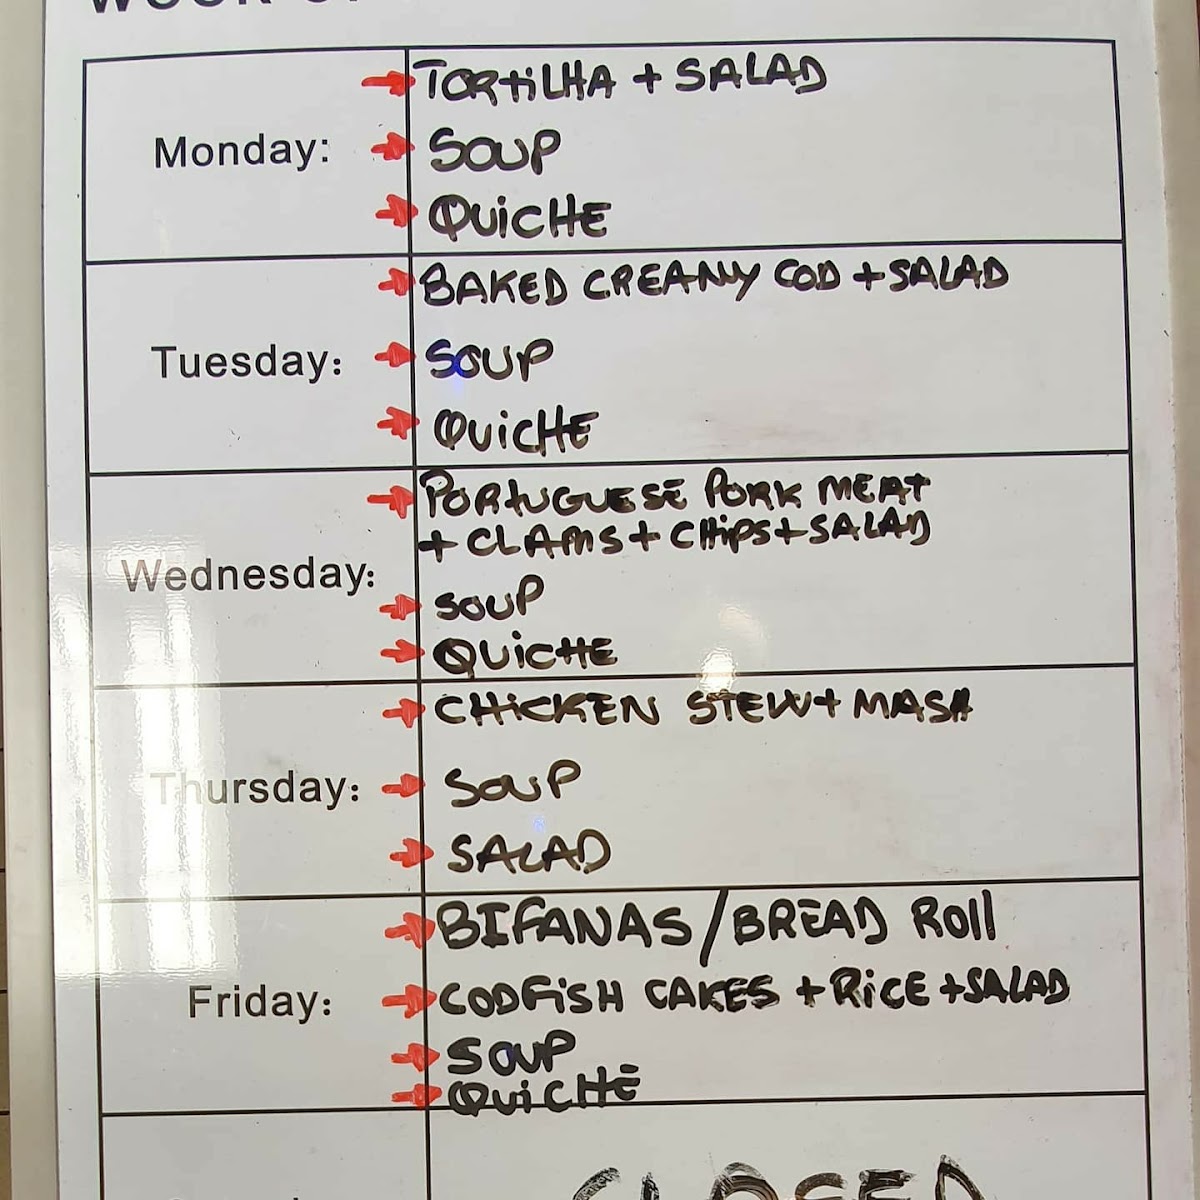 Monday:
TORTILHA + SALAD
SOUP
QUICHE
Tuesday:
BAKED CREAMY COD + SALAD
SOUP
QUICHE
Wednesday:
PORTUGUESE PORK MEAT
+ CLAMS + CHIPS + SALAD
SOUP
QUICHE
Thursday:
CHICKEN STEW + MASH
SOUP
SALAD
Friday:
BIFANAS / BREAD ROLL
CODFISH CAKES + RICE + SALAD
SOUP
QUICHE
CLOSED